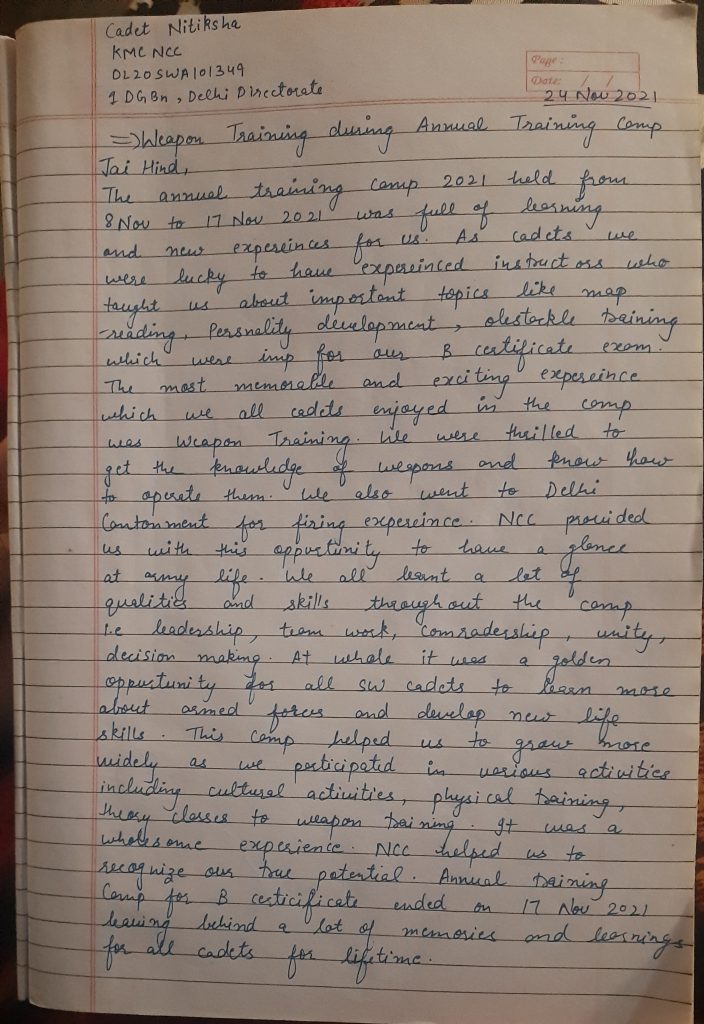 Cadet Nitiksha
KMC NCC
DL20SWA101349
1 DGBn, Delhi Directorate
Page:
Date: / /
24 Nov 2021
=> Weapon Training during Annual Training Camp
Jai Hind,
The annual training camp 2021 held from
8 Nov to 17 Nov 2021 was full of learning
and new expereinces for us. As cadets we
were lucky to have expereinced instructors who
taught us about important topics like map
-reading, Personality development, olestackle training
which were imp for our B certificate exam.
The most memorable and exciting expereince
which we all cadets enjoyed in the camp
was Weapon Training. We were thrilled to
get the knowledge of weapons and know how
to operate them. We also went to Delhi
Cantonment for firing expereince. NCC provided
us with this oppurtunity to have a glance
at army life. We all learnt a lot of
qualities and skills throughout the camp
i.e leadership, team work, comradership, unity,
decision making. At whole it was a golden
oppurtunity for all SW cadets to learn more
about armed forces and develop new life
skills. This camp helped us to grow more
widely as we participated in various activities
including cultural activities, physical training,
theory classes to weapon training. It was a
wholesome experience. NCC helped us to
recognize our true potential. Annual training
Camp for B certicificate ended on 17 Nov 2021
leaving behind a lot of memories and learnings
for all cadets for lifetime.